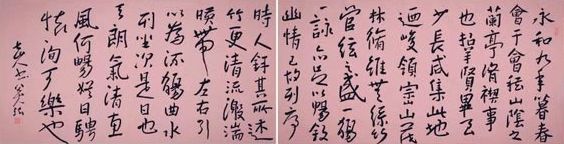 永和九年暮春
會于會稽山陰之
蘭亭脩禊事
也羣賢畢
少長咸集此地
迺峻領崇山茂
林脩雖無絲竹
管絃之盛觴
一詠亦足以暢敘
幽情已故列序
時人錄其所述
竹更清流激湍
暎帶左右引
以為流觴曲水
列坐次是日也
天朗氣清惠
風何暢好日騁
懷洵可樂也